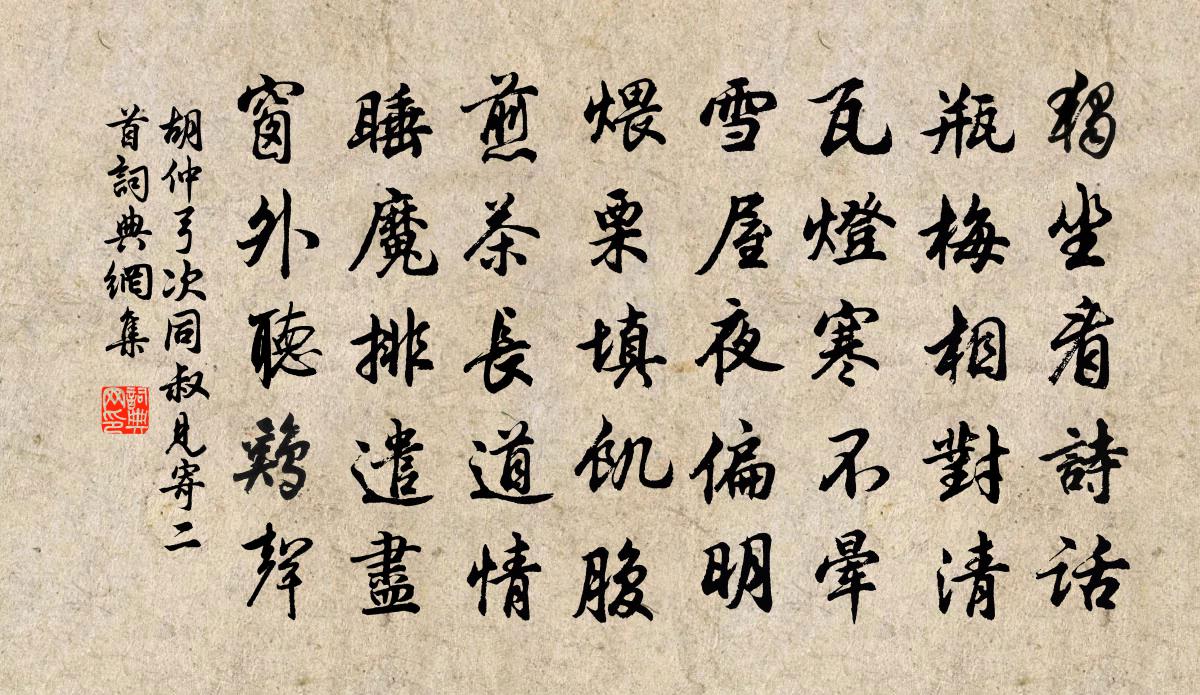 獨坐看詩話
瓶梅相對清
瓦燈寒不暈
雪屋夜偏明
煨栗填飢腹
煎茶長道情
睡魔排遣盡
窗外聽鷄聲
胡仲弓次同叔見寄二
首詞典網集
詞典
网印